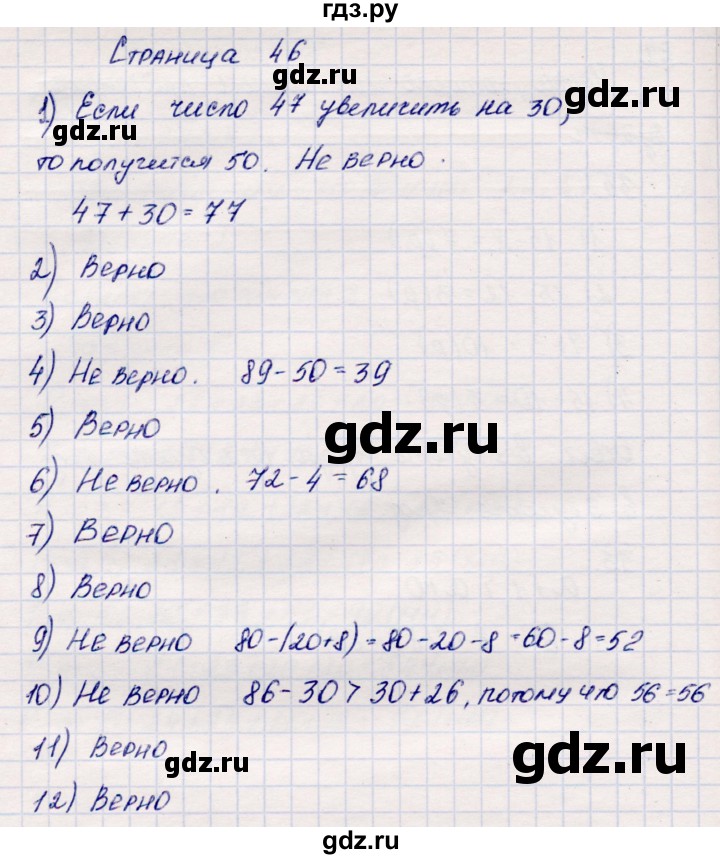 гдз.ру
Страница 46
1) Если число 47 увеличить на 30,
gdz.ru
то получится 50. Не верно.
47+30=77
2) Верно
3) Верно
4) Не верно. 89-50=39
5) Верно
gdz.ru
6) Не верно. 72-4=68
7) Верно
8) Верно
9) Не верно 80-(20+8)=80-20-8=60-8=52
10) Не верно 86-30>30+26, потому что 56=56
11) Верно
gdz.ru
gdz.ru
12) Верно
gdz.ru